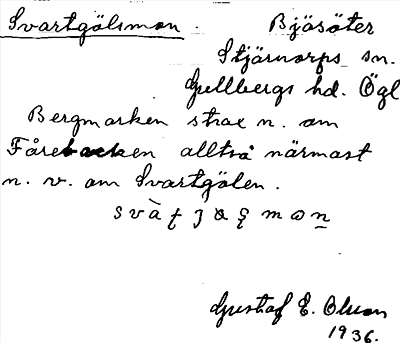 Svartgölsmon. Bjäsäter
Stjärnorps sn.
Gullbergs hd. Ögl
Bergmarken strax n. om
Fårebacken alltså närmast
n. v. om Svartgölen.
Gustaf E. Olsson
1936.